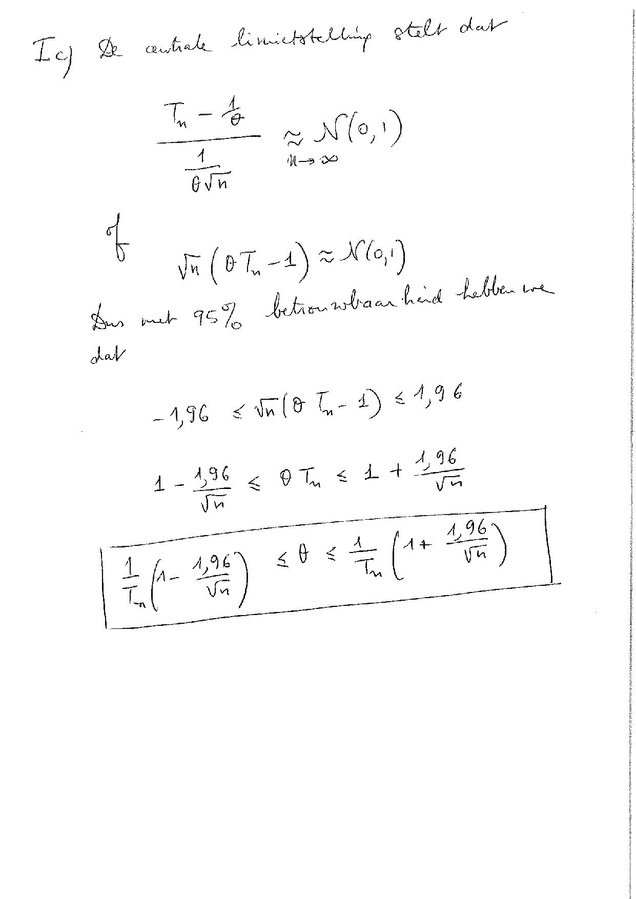 I c) De centrale limietstelling stelt dat
\frac{T_n - \frac{1}{θ}}{\frac{1}{θ√n}} ≈_{n→∞} N(0,1)
of
√n (θ T_n - 1) ≈ N(0,1)
Dus met 95% betrouwbaarheid hebben we
dat
-1,96 ≤ √n (θ T_n - 1) ≤ 1,96
1 - \frac{1,96}{√n} ≤ θ T_n ≤ 1 + \frac{1,96}{√n}
\frac{1}{T_n} (1 - \frac{1,96}{√n}) ≤ θ ≤ \frac{1}{T_n} (1 + \frac{1,96}{√n})